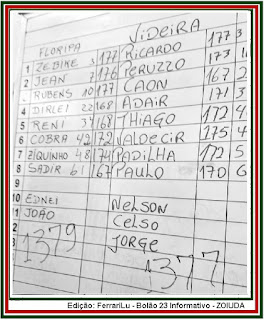 FLORIPA VIDEIRA
1 ZEBIKE 3 177 RICARDO 177 3
2 JEAN 7 176 PERUZZO 173
3 RUBENS 10 177 CAON 167 2
4 DIRLEI 22 168 ADAIR 171 3
5 RENI 34 168 THIAGO 172 4
6 COBRA 42 172 VALDECIR 175 4
7 ZIQUINHO 48 174 PADILHA 172 5
8 SADIR 61 167 PAULO 170 6
9
10 EDNEI NELSON
11 JOÃO CELSO
JORGE
1379 1377
Edição: FerrariLu - Bolão 23 Informativo - ZOIUDA